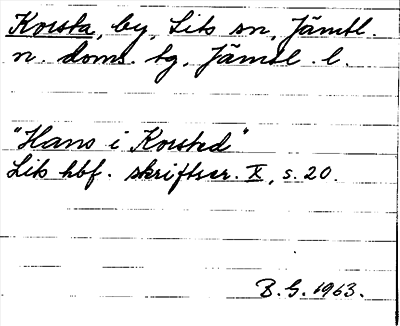 Korsta, by, Lits sn, Jämtl.
n. doms. tg, Jämtl. l.
"Hans i Korsted"
Lits hbf. skriftser. X, s. 20.
B. G. 1963.